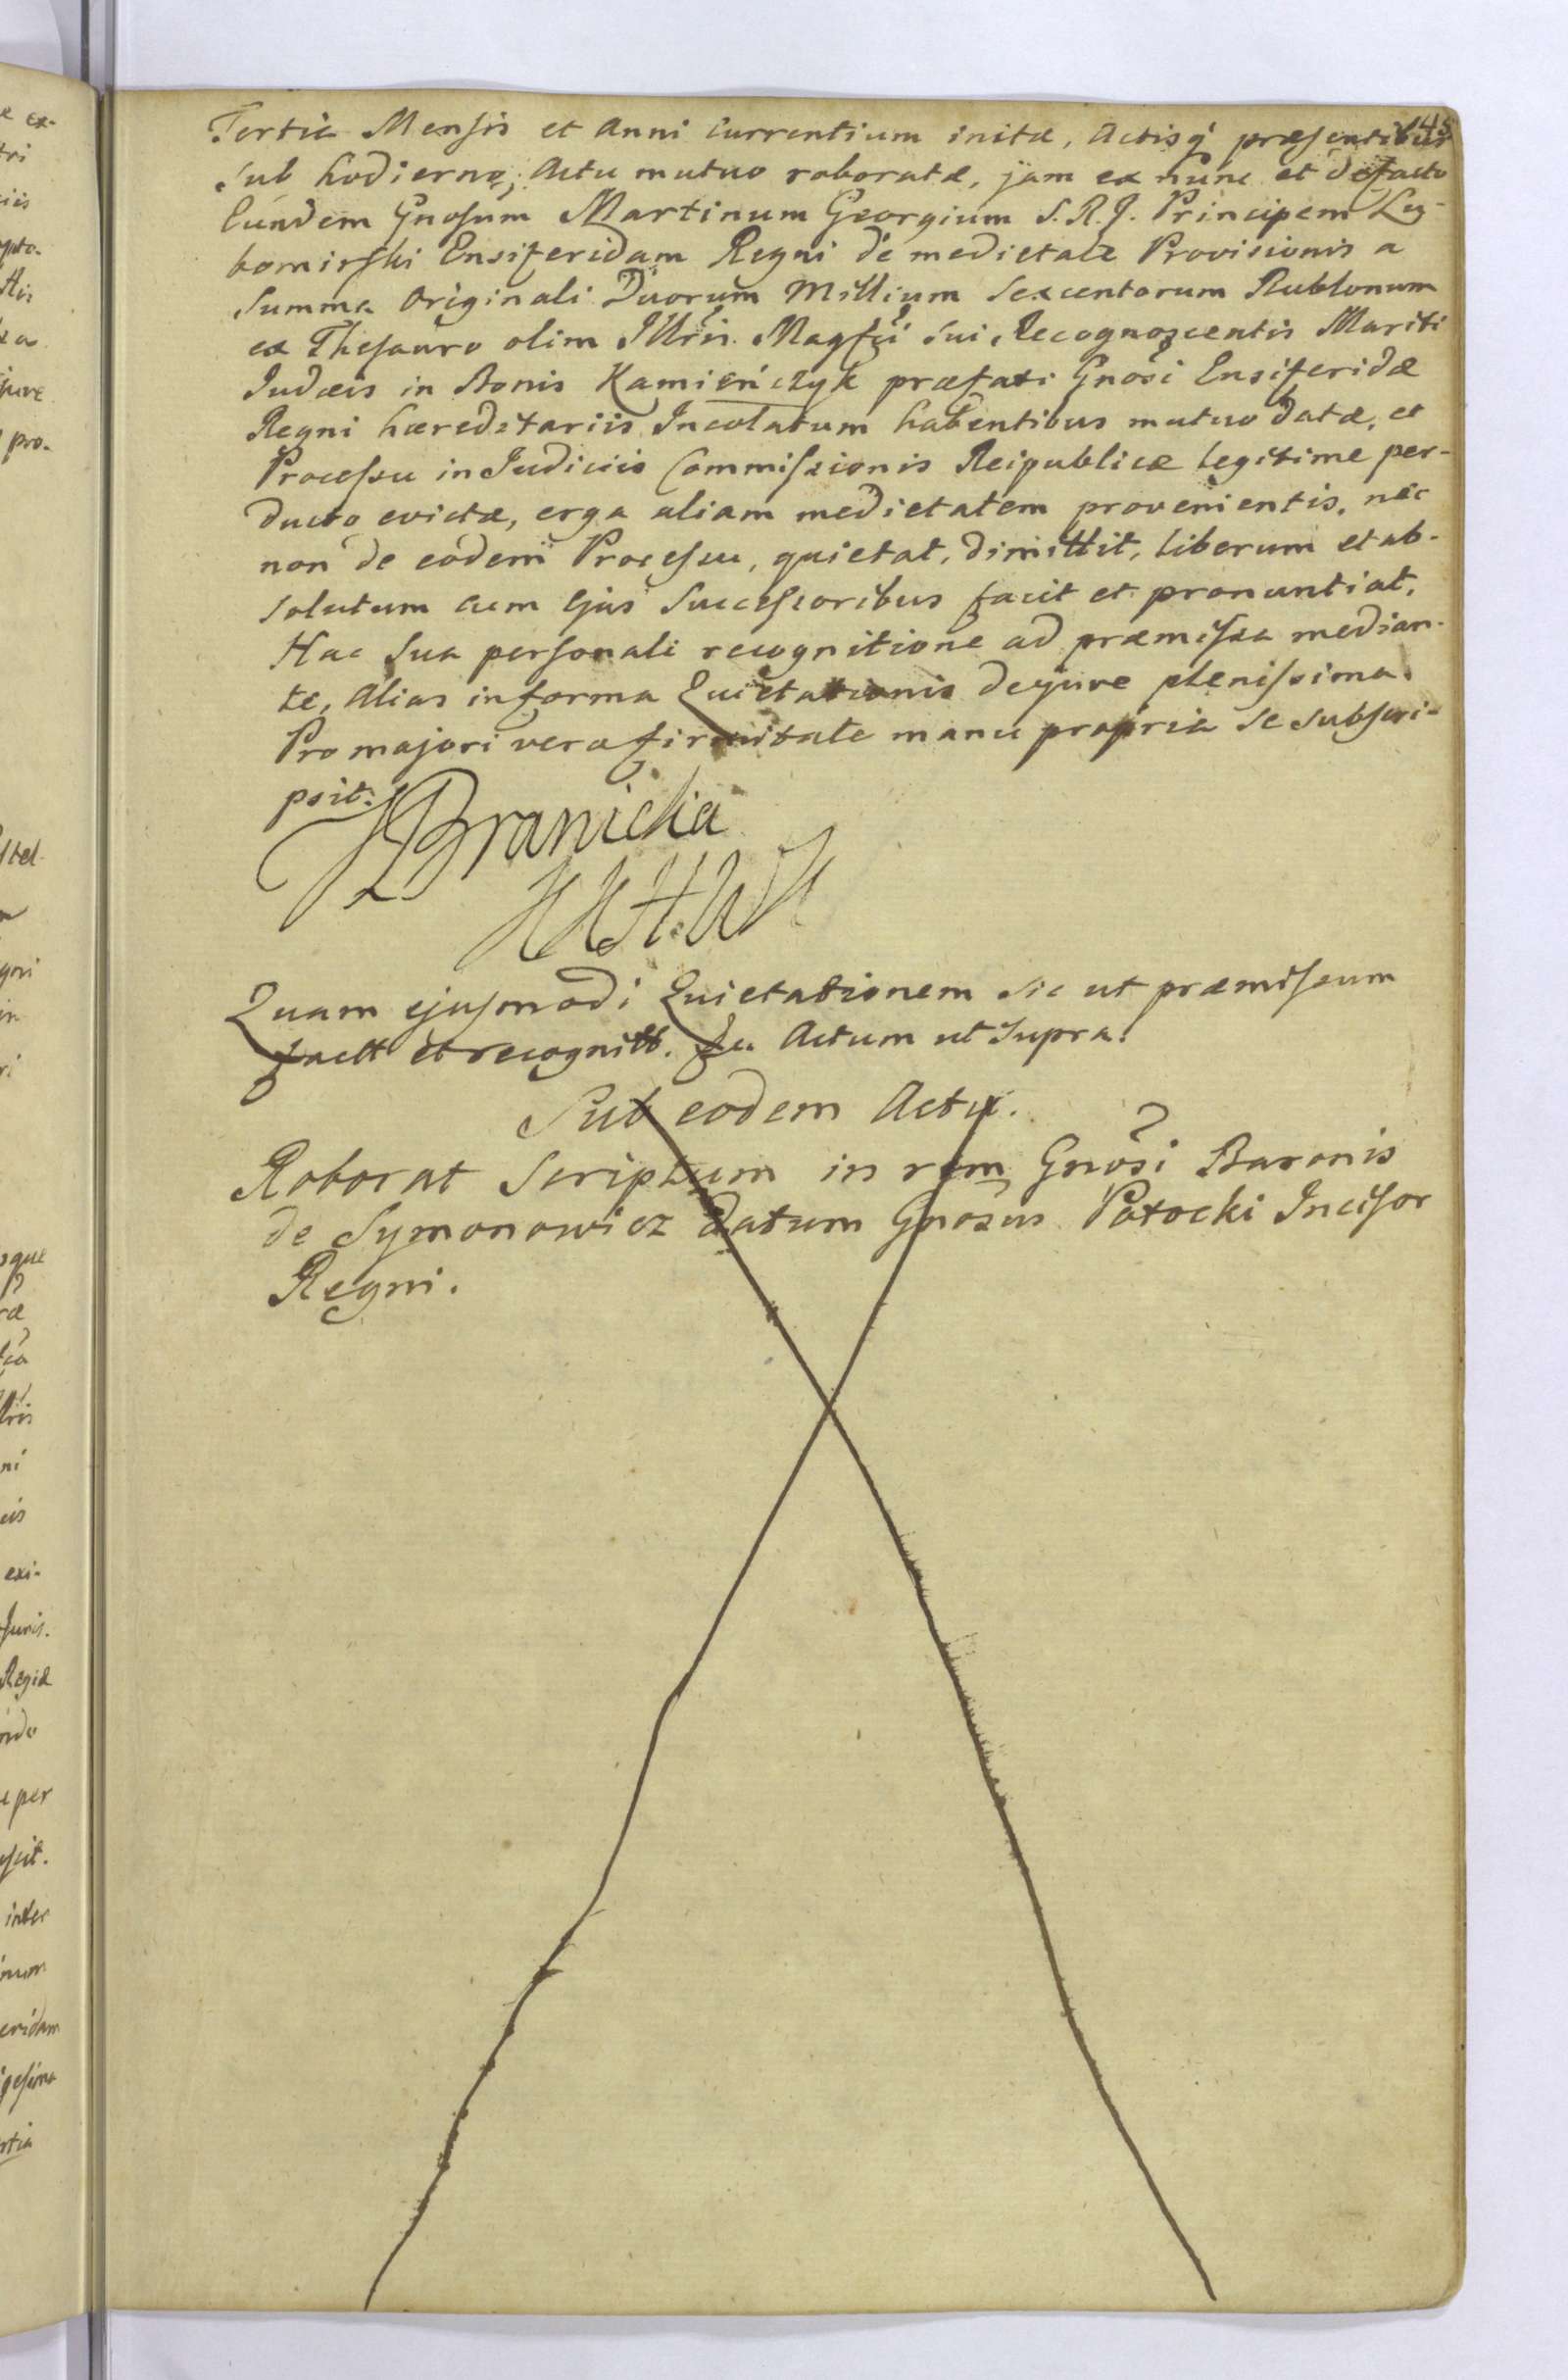 145
Tertia Mensis et Anni currentium initæ, Actisq́ præsentibus
sub hodierno, Actu mutuo roboratæ, jam ex nunc et defacto
Eundem Gnosum Martinum Georgium S.R.J. Principem Lu-
bomirski Ensiferidam Regni de medietate Provisionis a
Summa Originali Duorum Millium Sexcentorum Rublonum
ex Thesauro olim Magfci sui, Recognoscentis Mariti
Judæis in Bonis Kamieńczyk præfati Gnosi Ensiferidæ
Regni hæreditariis Incolatum habentibus mutuo datæ, et
Processu in Judiciis Commissionis Reipublicæ legitime per-
ducto evictæ, erga aliam medietatem provenientis, nec
non de eodem Processu, quietat, dimittit, liberum et ab-
solutum cum ejus Successoribus facit et pronuntiat,
Hac sua personali recognitione ad præmissa median-
te, Alias in forma Quietationis de jure plenissima.
Pro majori vero firmitate manu propria se subscri-
psit.
Branicka
Quam ejusmodi Quietationem sic ut præmissum
factt et recognitt. Actum ut Supra.
Sub eodem Actu.
Roborat Scriptum in rem Gnosi Baronis
de Symonowicz datum Gnosus Potocki Incisor
Regni.